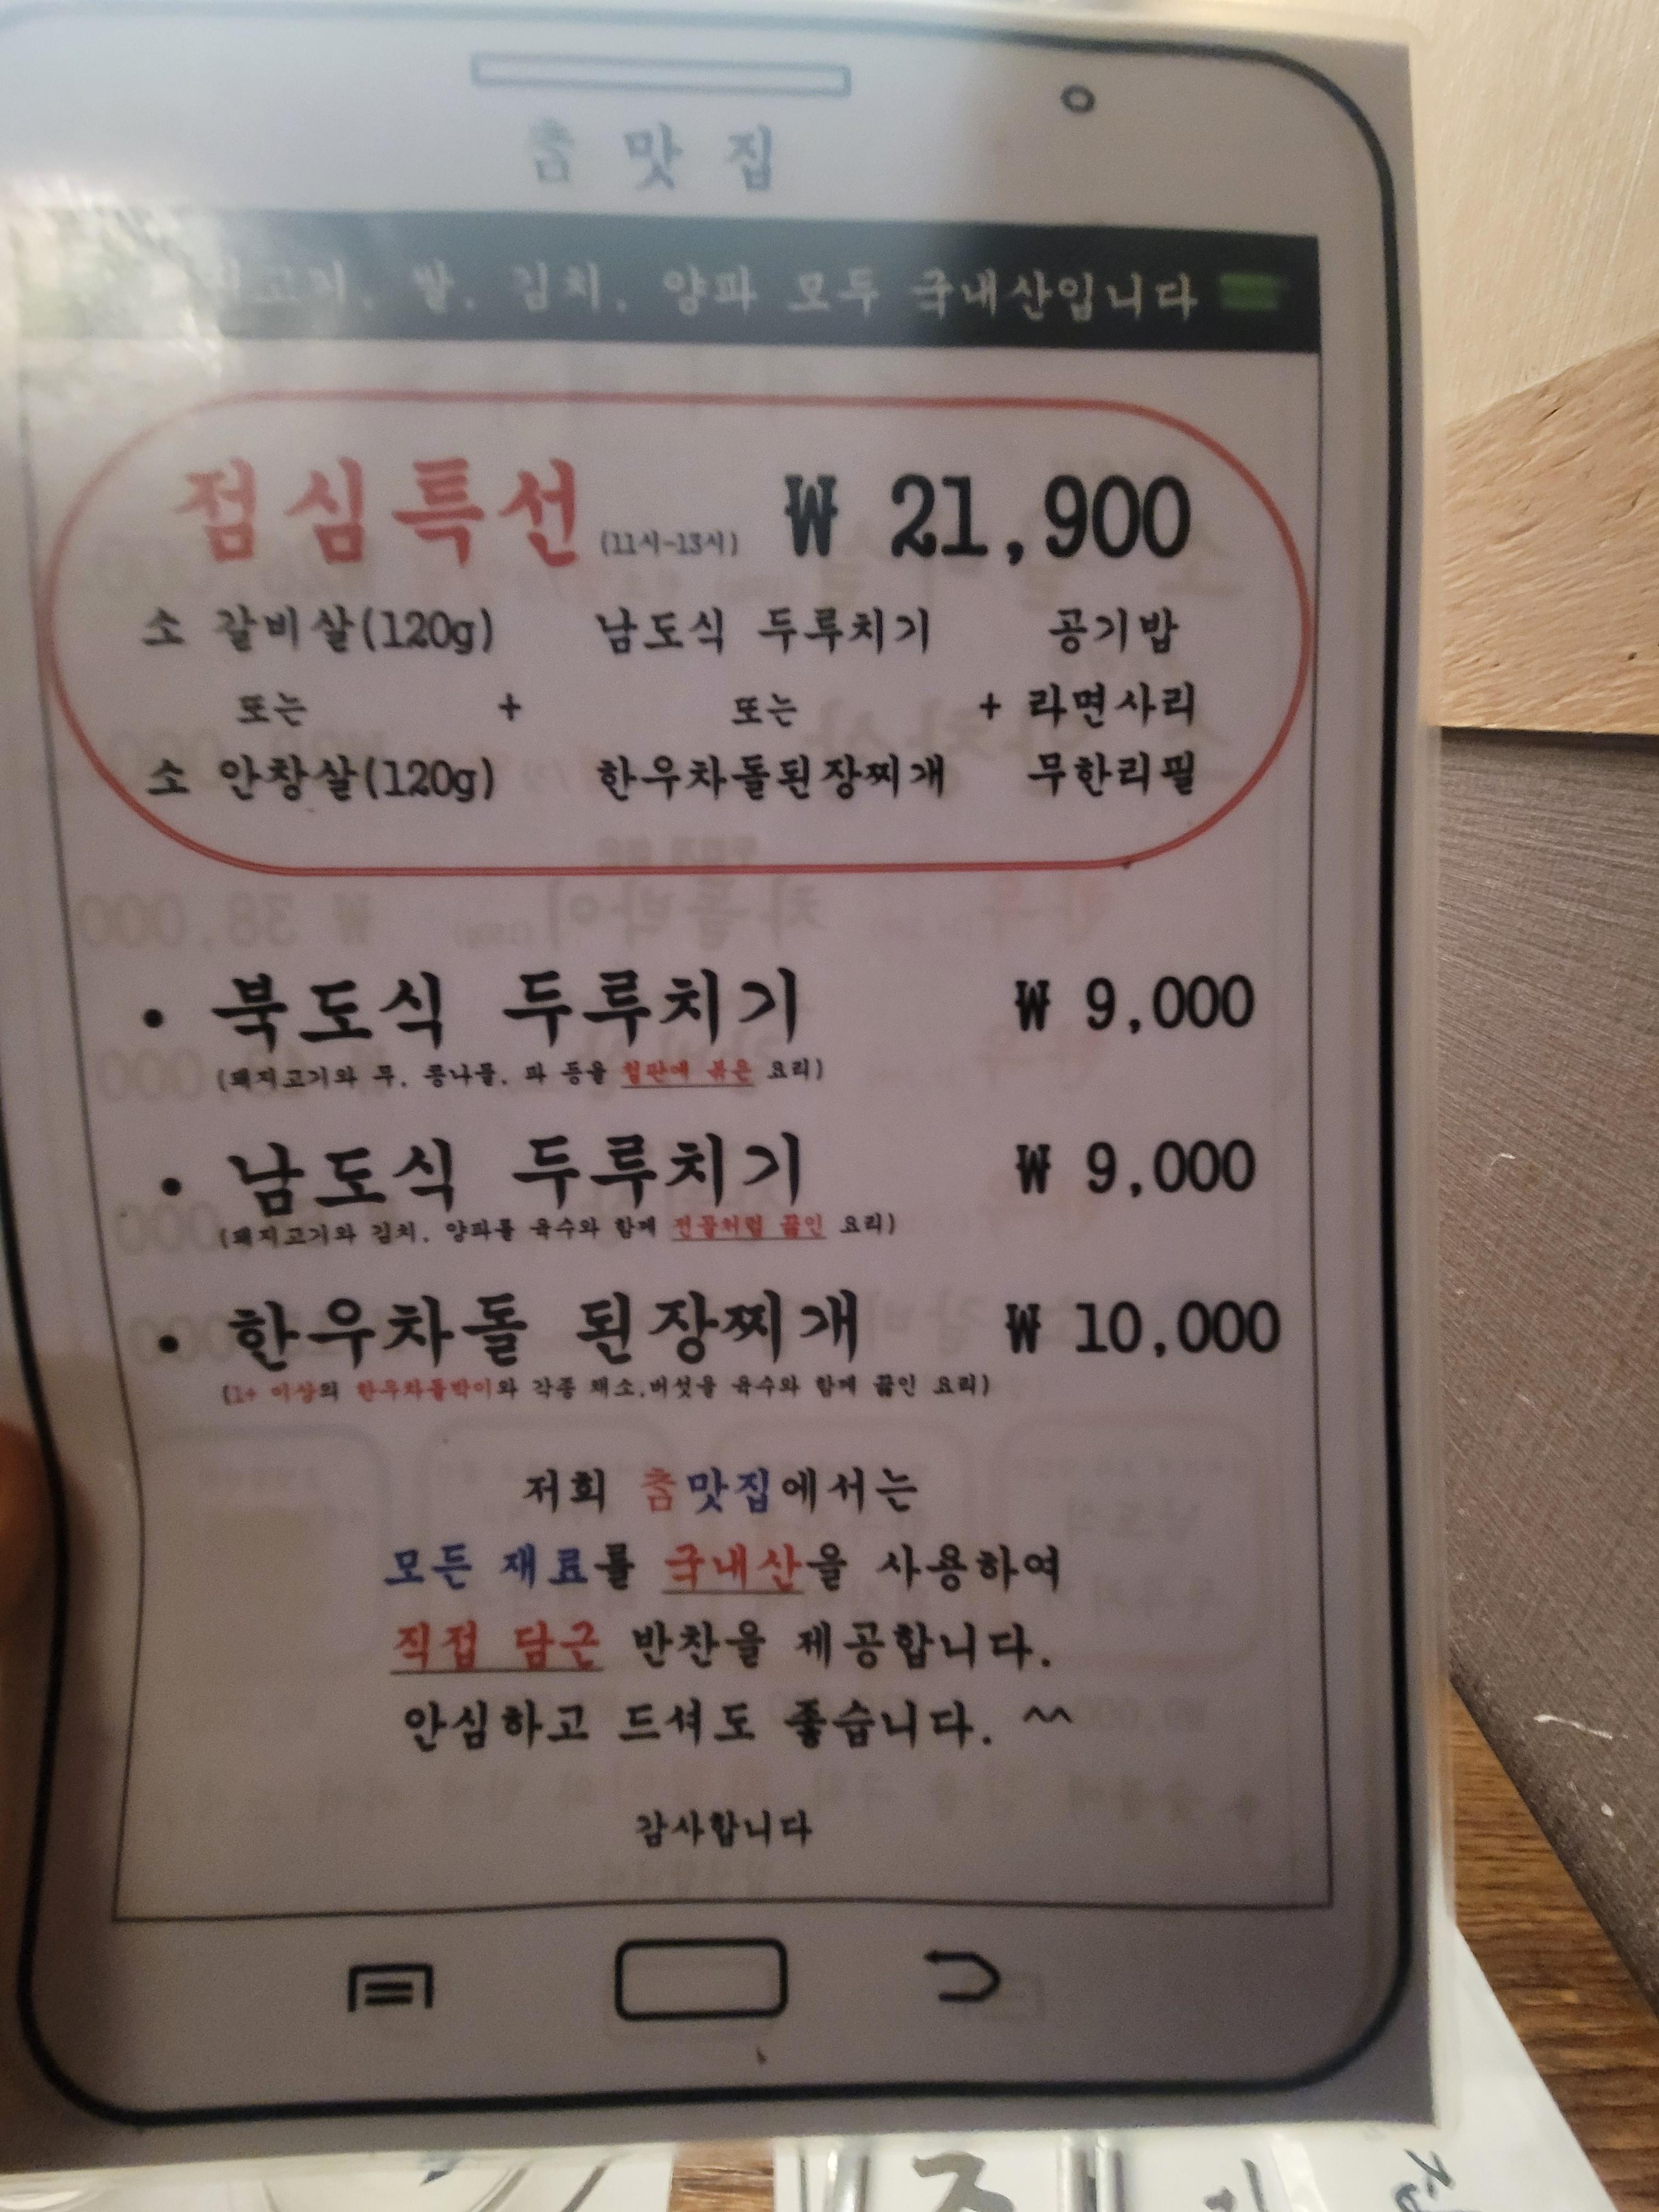 춤맛집
쌀, 김치, 양파 모두 국내산입니다
점심특선 (11시-13시) ₩ 21,900
소 갈비살(120g) 남도식 두루치기 공기밥
또는 + 또는 + 라면사리
소 안창살(120g) 한우차돌된장찌개 무한리필
• 북도식 두루치기 ₩ 9,000
(돼지고기와 무, 콩나물, 파 등을 철판에 볶은 요리)
• 남도식 두루치기 ₩ 9,000
(돼지고기와 김치, 양파를 육수와 함께 전골처럼 끓인 요리)
• 한우차돌 된장찌개 ₩ 10,000
(1+ 이상의 한우차돌박이와 각종 채소,버섯을 육수와 함께 끓인 요리)
저희 춤맛집에서는
모든 재료를 국내산을 사용하여
직접 담근 반찬을 제공합니다.
안심하고 드셔도 좋습니다. ^^
감사합니다